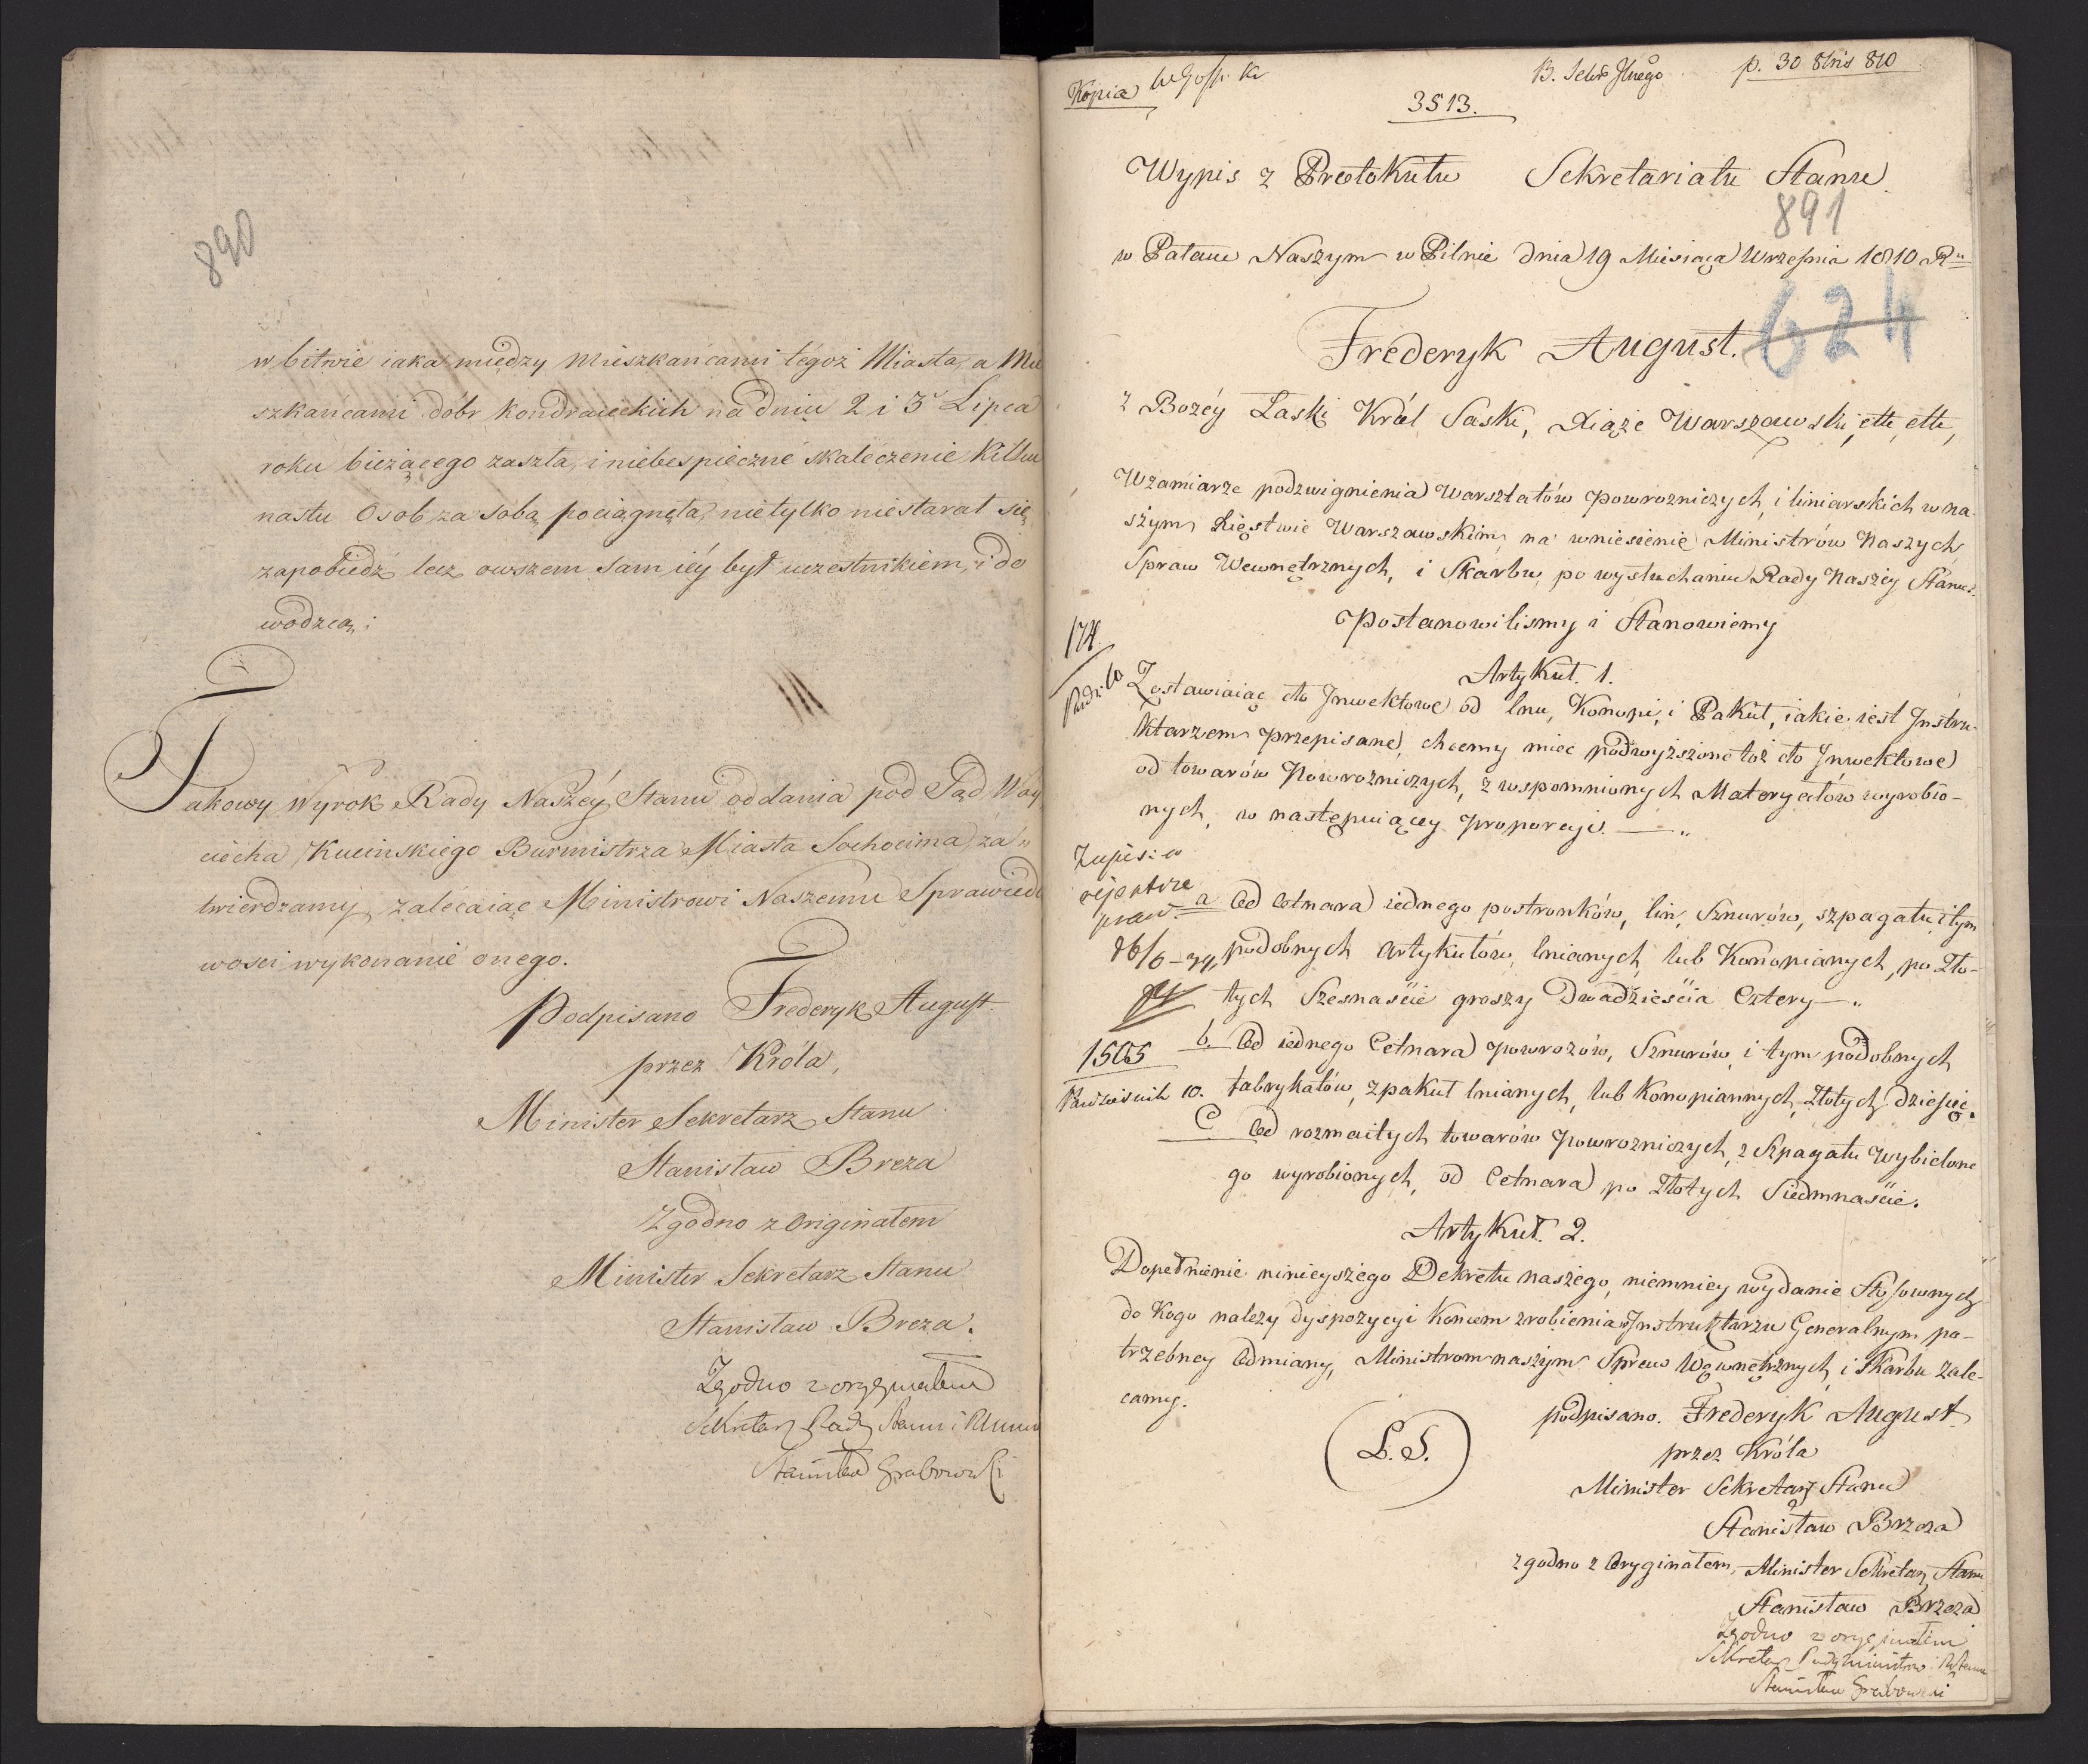 890
w bitwie iaka między Mieszkańcami tégoż Miasta, a Mie
szkańcami dóbr Kondraieckich na dniu 2 i 3 Lipca
roku bieżącego zaszła, i niebespieczné skaléczenié Kilku
nastu Osob za sobą pociągnęła, nie tylko nie starał się
zapobiedź lecz owszem sam iéy był uczestnikiem, i do
wodzcą;
Takowy Wyrok Rady Naszéy Stanu oddania pod Sąd Woy
ciécha Kucinskiego Burmistrza Miasta Sochocina, za"
twierdzamy, zalécaiąc Ministrowi Naszemu Sprawiedl
wosci wykonanié onego.
Podpisano Frederyk August.
przez Króla,
Minister Sekretarz Stanu
Stanisław Breza
Zgodno z Originałem
Minister Sekretarz Stanu
Stanisław Breza.
Zgodno z oryginałem
Sekretarz Rady Stanu i
Stanisław Grabowski
Kopia
p. 30 8bris 810
3513.
Wypis z Protokułu Sekretariatu Stanu.
891
w Pałacu Naszym w Pilnie dnia 19 Miesiąca Września 1810 Ru
624
Frederyk August.
z Bożéy Łaski Król Saski, Xiąże Warszawski, ettc, ettc,
W zamiarze podzwignienia Warsztatów powrozniczych, i liniarskich w na-
szym Xięstwie Warszawskim, na wniesienie Ministrów Naszych
Spraw Wewnętrznych, i Skarbu, po wysłuchaniu Rady Naszéy Stanu.
Postanowilismy i Stanowiemy
174
Paźdź. 10
Artykuł. 1.
Zostawiaiąc cło Inwektowe od lnu, Konopi, i Pakuł, iakie iest Instru-
ktarzem przepisane, chcemy miec podwyższone toż cło Inwektowe
od towarów Powrozniczych, z wspomnionych Materyałów wyrobio-
nych, w następuiący proporcyi. — "
a Od Cetnara iednego postronków, lin, Sznurów, szpagatu, i tym
podobnych artykułów, lnianych, lub Konopianych, po Zło-
tych Szesnaście groszy Dwadzieścia Cztery — "
1505
b. Od iednego Cetnara powrozów, Sznurów, i tym podobnych
Październik 10. fabrykatów, z pakuł lnianych, lub Konopiannych, Złotych dziesięć.
C Od rozmaitych towarów powrozniczych, z Szpagatu Wybielone
go wyrobionych, od Cetnara po Złotych Siedmnaście.
Artykuł. 2.
Dopełnienie ninieyszego Dekretu naszego, niemniey wydanie Stosownych
do Kogo należy dyspozycyi Koncem zrobienia w Instruktarzu Generalnym po-
trzebney Odmiany, Ministrom naszym Spraw Wewnętrznych, i Skarbu zale-
camy.
podpisano. Frederyk August
L. S.
przez Króla
Minister Sekretarz Stanu
Stanisław Brzeza
zgodno z Oryginałem, Minister Sekretarz Stanu
Stanisław Brzeza
Zgodno z oryginałem
Sekretarz Rady
Stanisław Grabowski